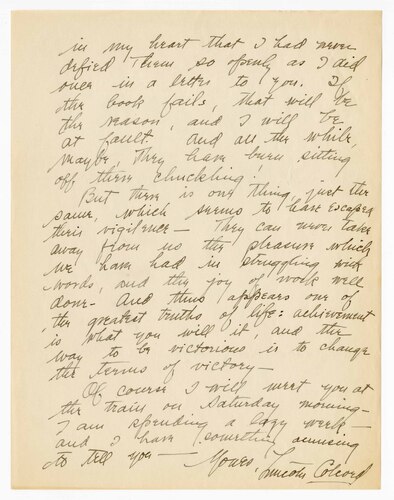 in my heart that I had never
defied Them so openly as I did
once in a letter to you. If
the book fails, that will be
the reason, and I will be
at fault. And all the while,
maybe, They have been sitting
off there chuckling!
But there is one thing, just the
same, which seems to have escaped
their vigilence — They can never take
away from us the pleasure which
we have had in struggling with
words, and the joy of work well
done. And thus appears one of
the greatest truths of life: achievement
is what you will it, and the
way to be victorious is to change
the terms of victory —
Of course I will meet you at
the train on Saturday morning —
I am spending a lazy week —
and I have something amusing
to tell you — Yours, Lincoln Colcord